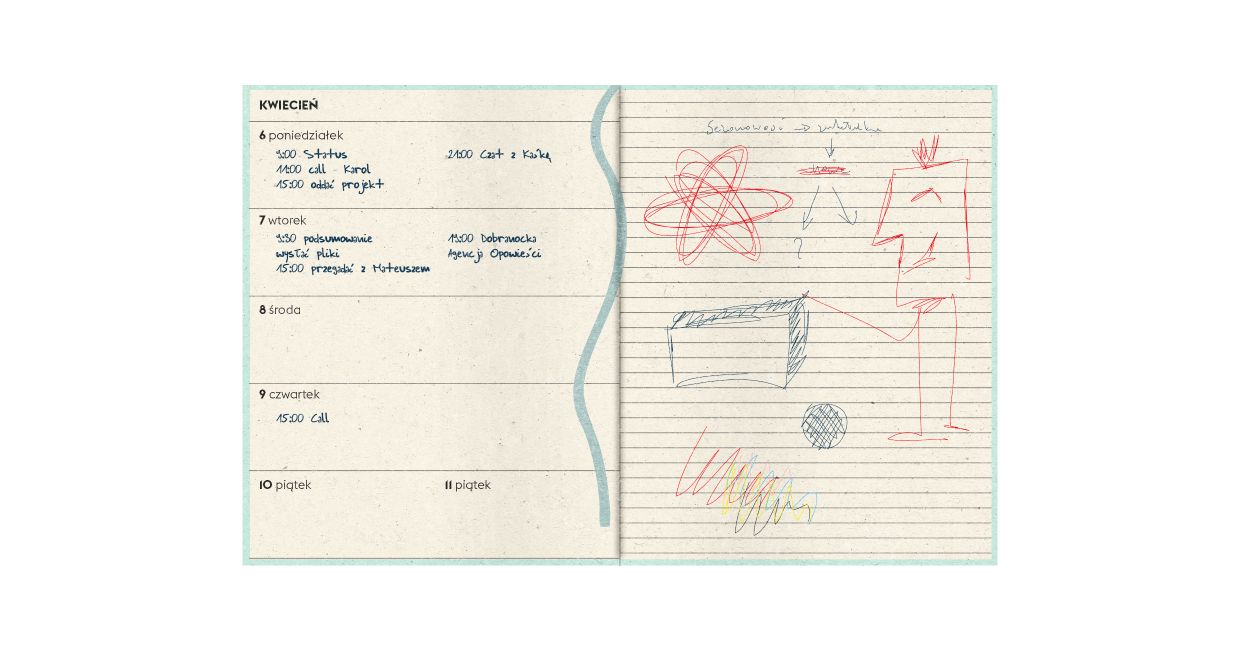 KWIECIEŃ
6 poniedziałek
9:00 Status
11:00 call - Karol
15:00 oddać projekt
21:00 Czat z Kaśką
7 wtorek
9:30 podsumowanie
wysłać pliki
15:00 przegadać z Mateuszem
19:00 Dobranocka
Agencja Opowieści
8 środa
9 czwartek
15:00 Call
10 piątek
11 piątek
Sezonowość →
?